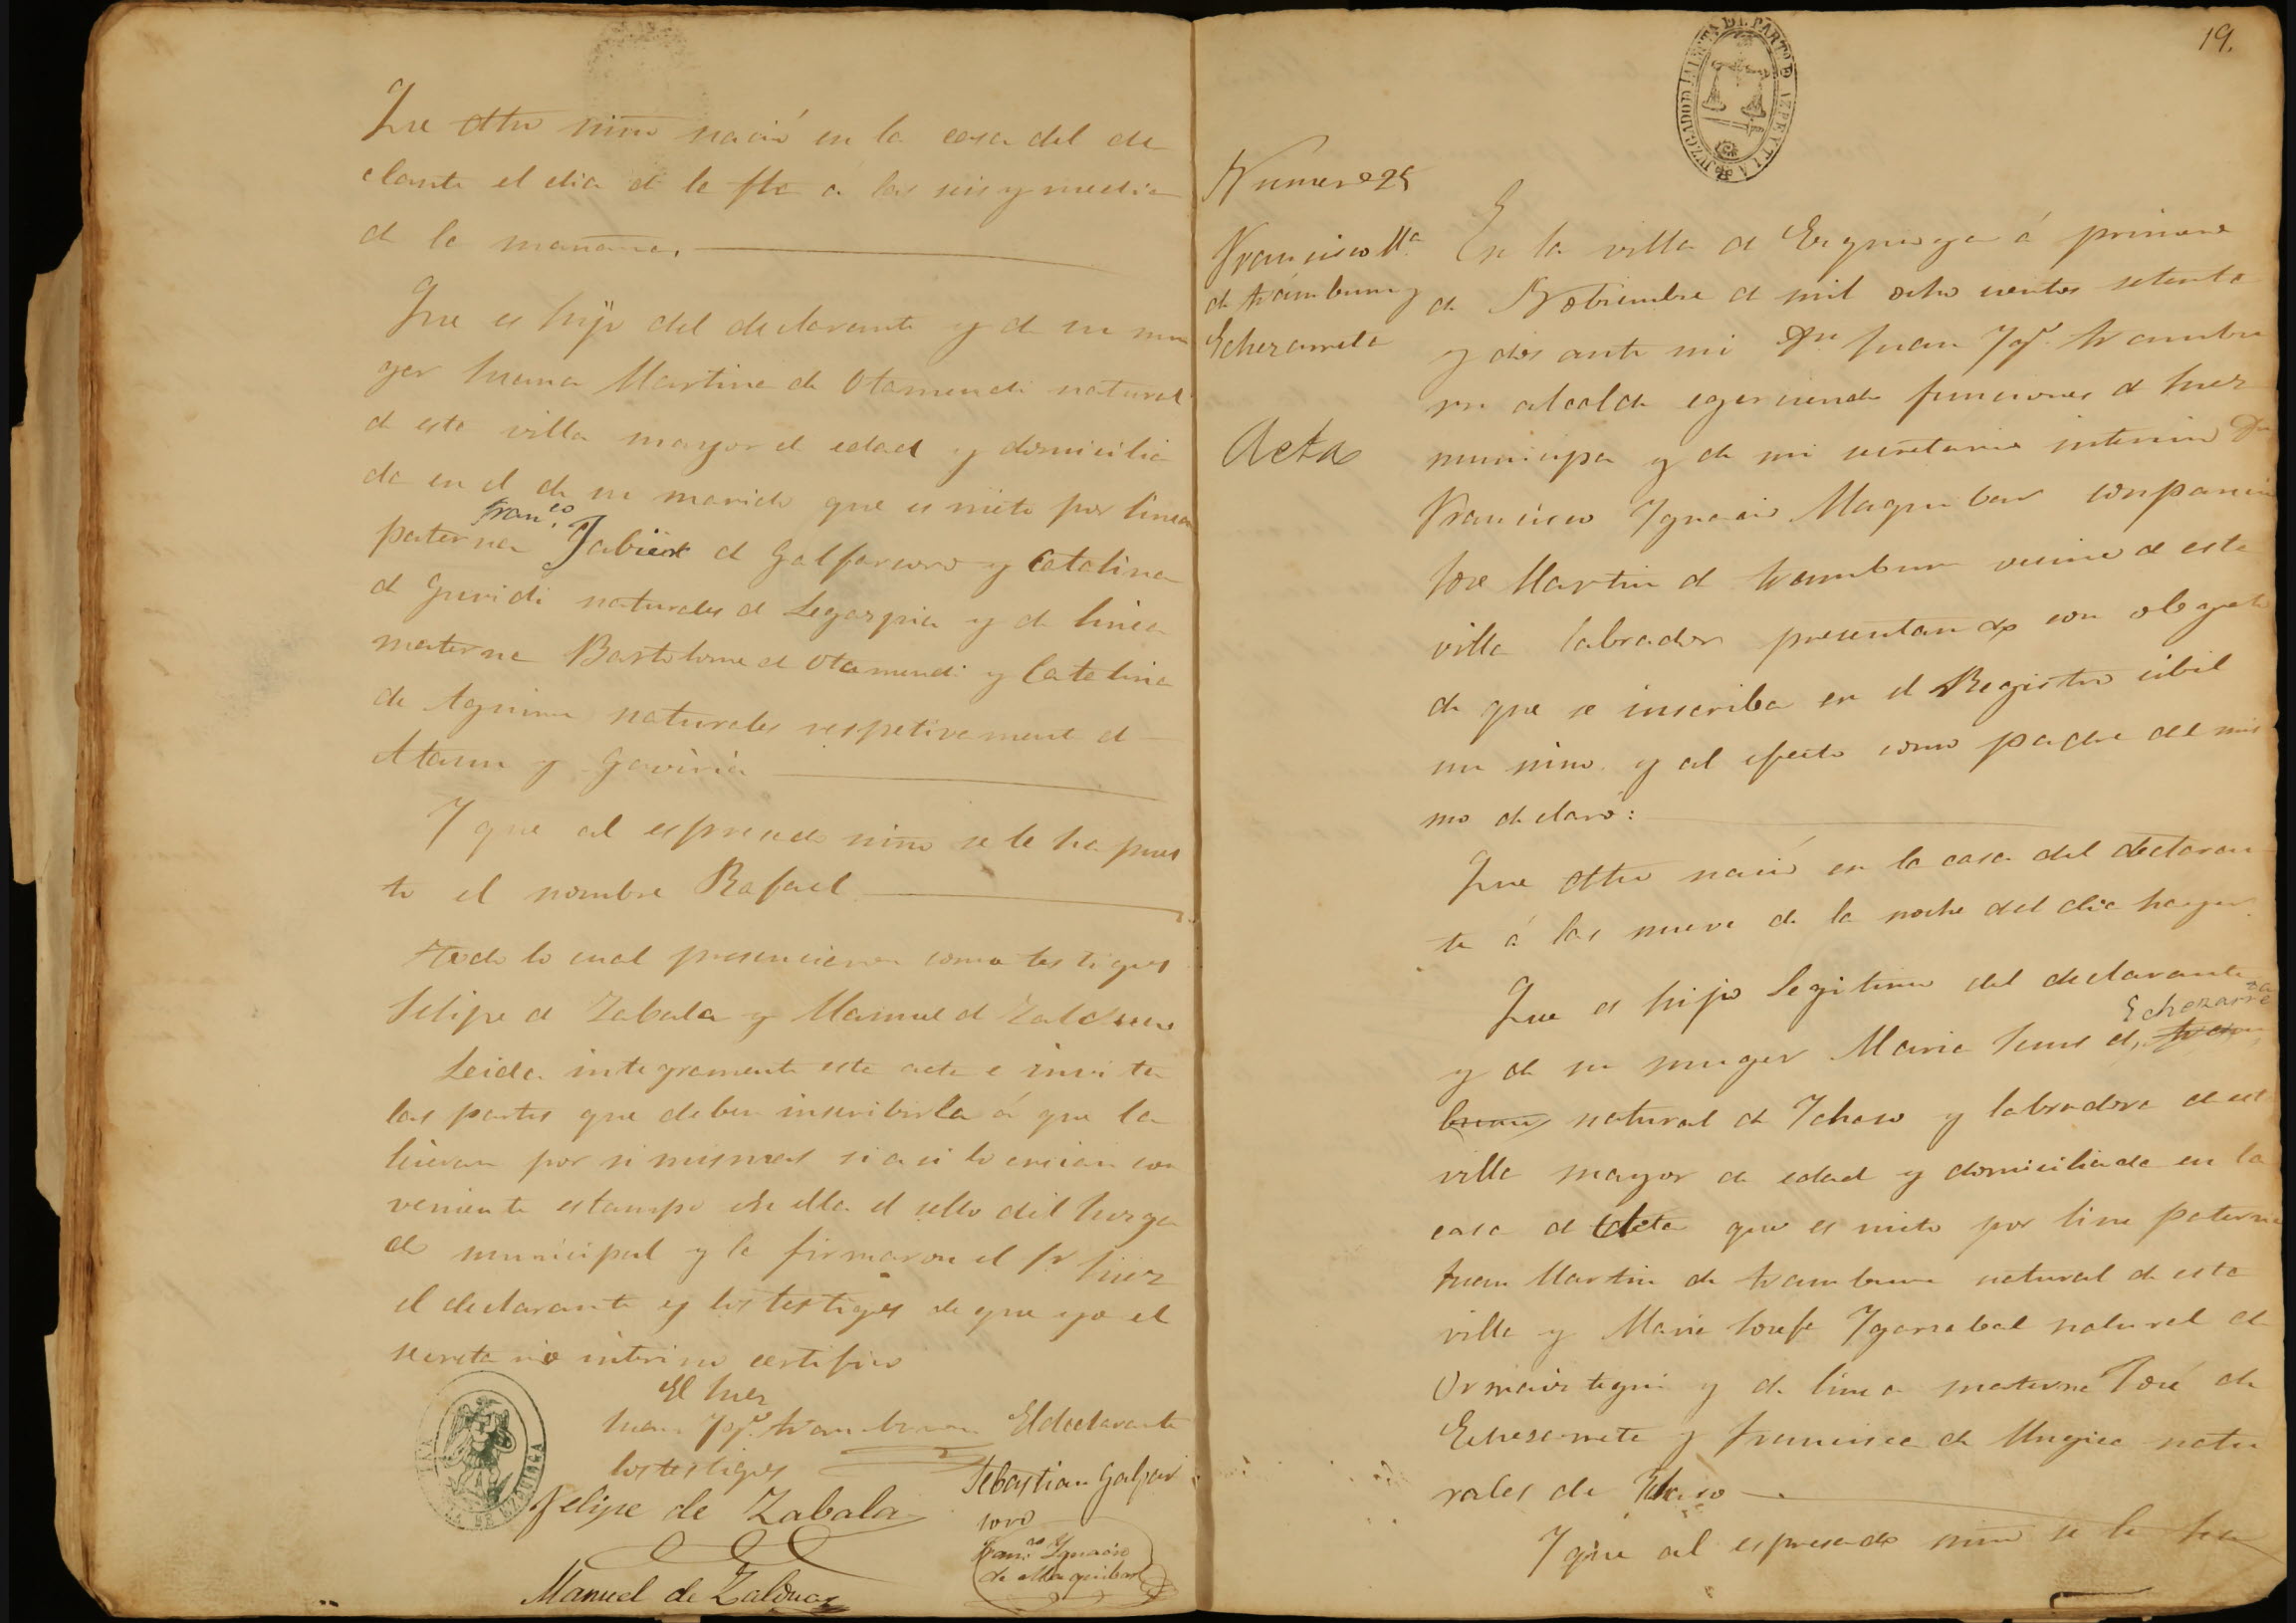 Que dho niño nació en la casa del de
clarante el dia de la fha a las seis y media
de la mañana.
Que es hijo del declarante y de su mu
ger Juana Martina de Otamendi natural
de esta villa mayor de edad y domicilia
da en el de su marido que es nieto por linea
paterna Fran.co Jabier de Galfarsoro y Catalina
de Guridi naturales de Legazpia y de linea
materna Bartolome de Otamendi y Catalina
de Aguirre naturales respetivament de
Ataun y Gaviria
Y que al espresado niño se le ha pues
to el nombre Rafael
Todo lo cual presenciaron como testigos
Felipe de Zabala y Manuel de Zaldua
Leida integramente esta acta e invite
las partes que deben inscribirla á que la
lieran por si mismas si asi lo creian con
veniente estampo en ella el sello del Juzga
do municipal y la firmaron el Sr Juez
el declarante y los testigos de que yo el
secretario interino certifico
El Juez
Juan Yg.o Aramburu El declarante
los testigos
Sebastian Galfar
soro
Felipe de Zabala
Fran.co Ygnacio
de Maguibar
Manuel de Zaldua
DE EZQUIOGA
19.
JUZGADO DE LA PARTDO D AZPEYTIA
Numero 25
Francisco M.a
de Arámburu y
Echezarreta
Acta
En la villa de Ezquioga á primero
de Nobiembre de mil ocho cientos setenta
y dos ante mi Dn Juan Yg.o Arambu
ru alcalde egerciendo funciones de Juez
municipa y de mi secretario interino Dn
Francisco Ygnacio Maguibar conparecio
Jose Martin de Aramburu vecino de esta
villa labrador presentando con obgeto
de que se inscriba en el Registro cibil
un niño y al efecto como padre del mis
mo declaró:
Que dho nació en la casa del declaran
te á las nueve de la noche del dia hayer.
Que es hijo legitimo del declarante
y de su muger Maria Juna de Echezarre
ta Aram
buru natural de Ychaso y labradora de est
villa mayor de edad y domiciliada en la
casa de que es nieto por line paterna
Juan Martin de Aramburu natural de esta
villa y Maria Josefa Ygarzabal natural de
Ormaiztegui y de linea materna José de
Echesarreta y francisca de Mugica natu
rales de Ychaso
Y que al espresado niño se le ha